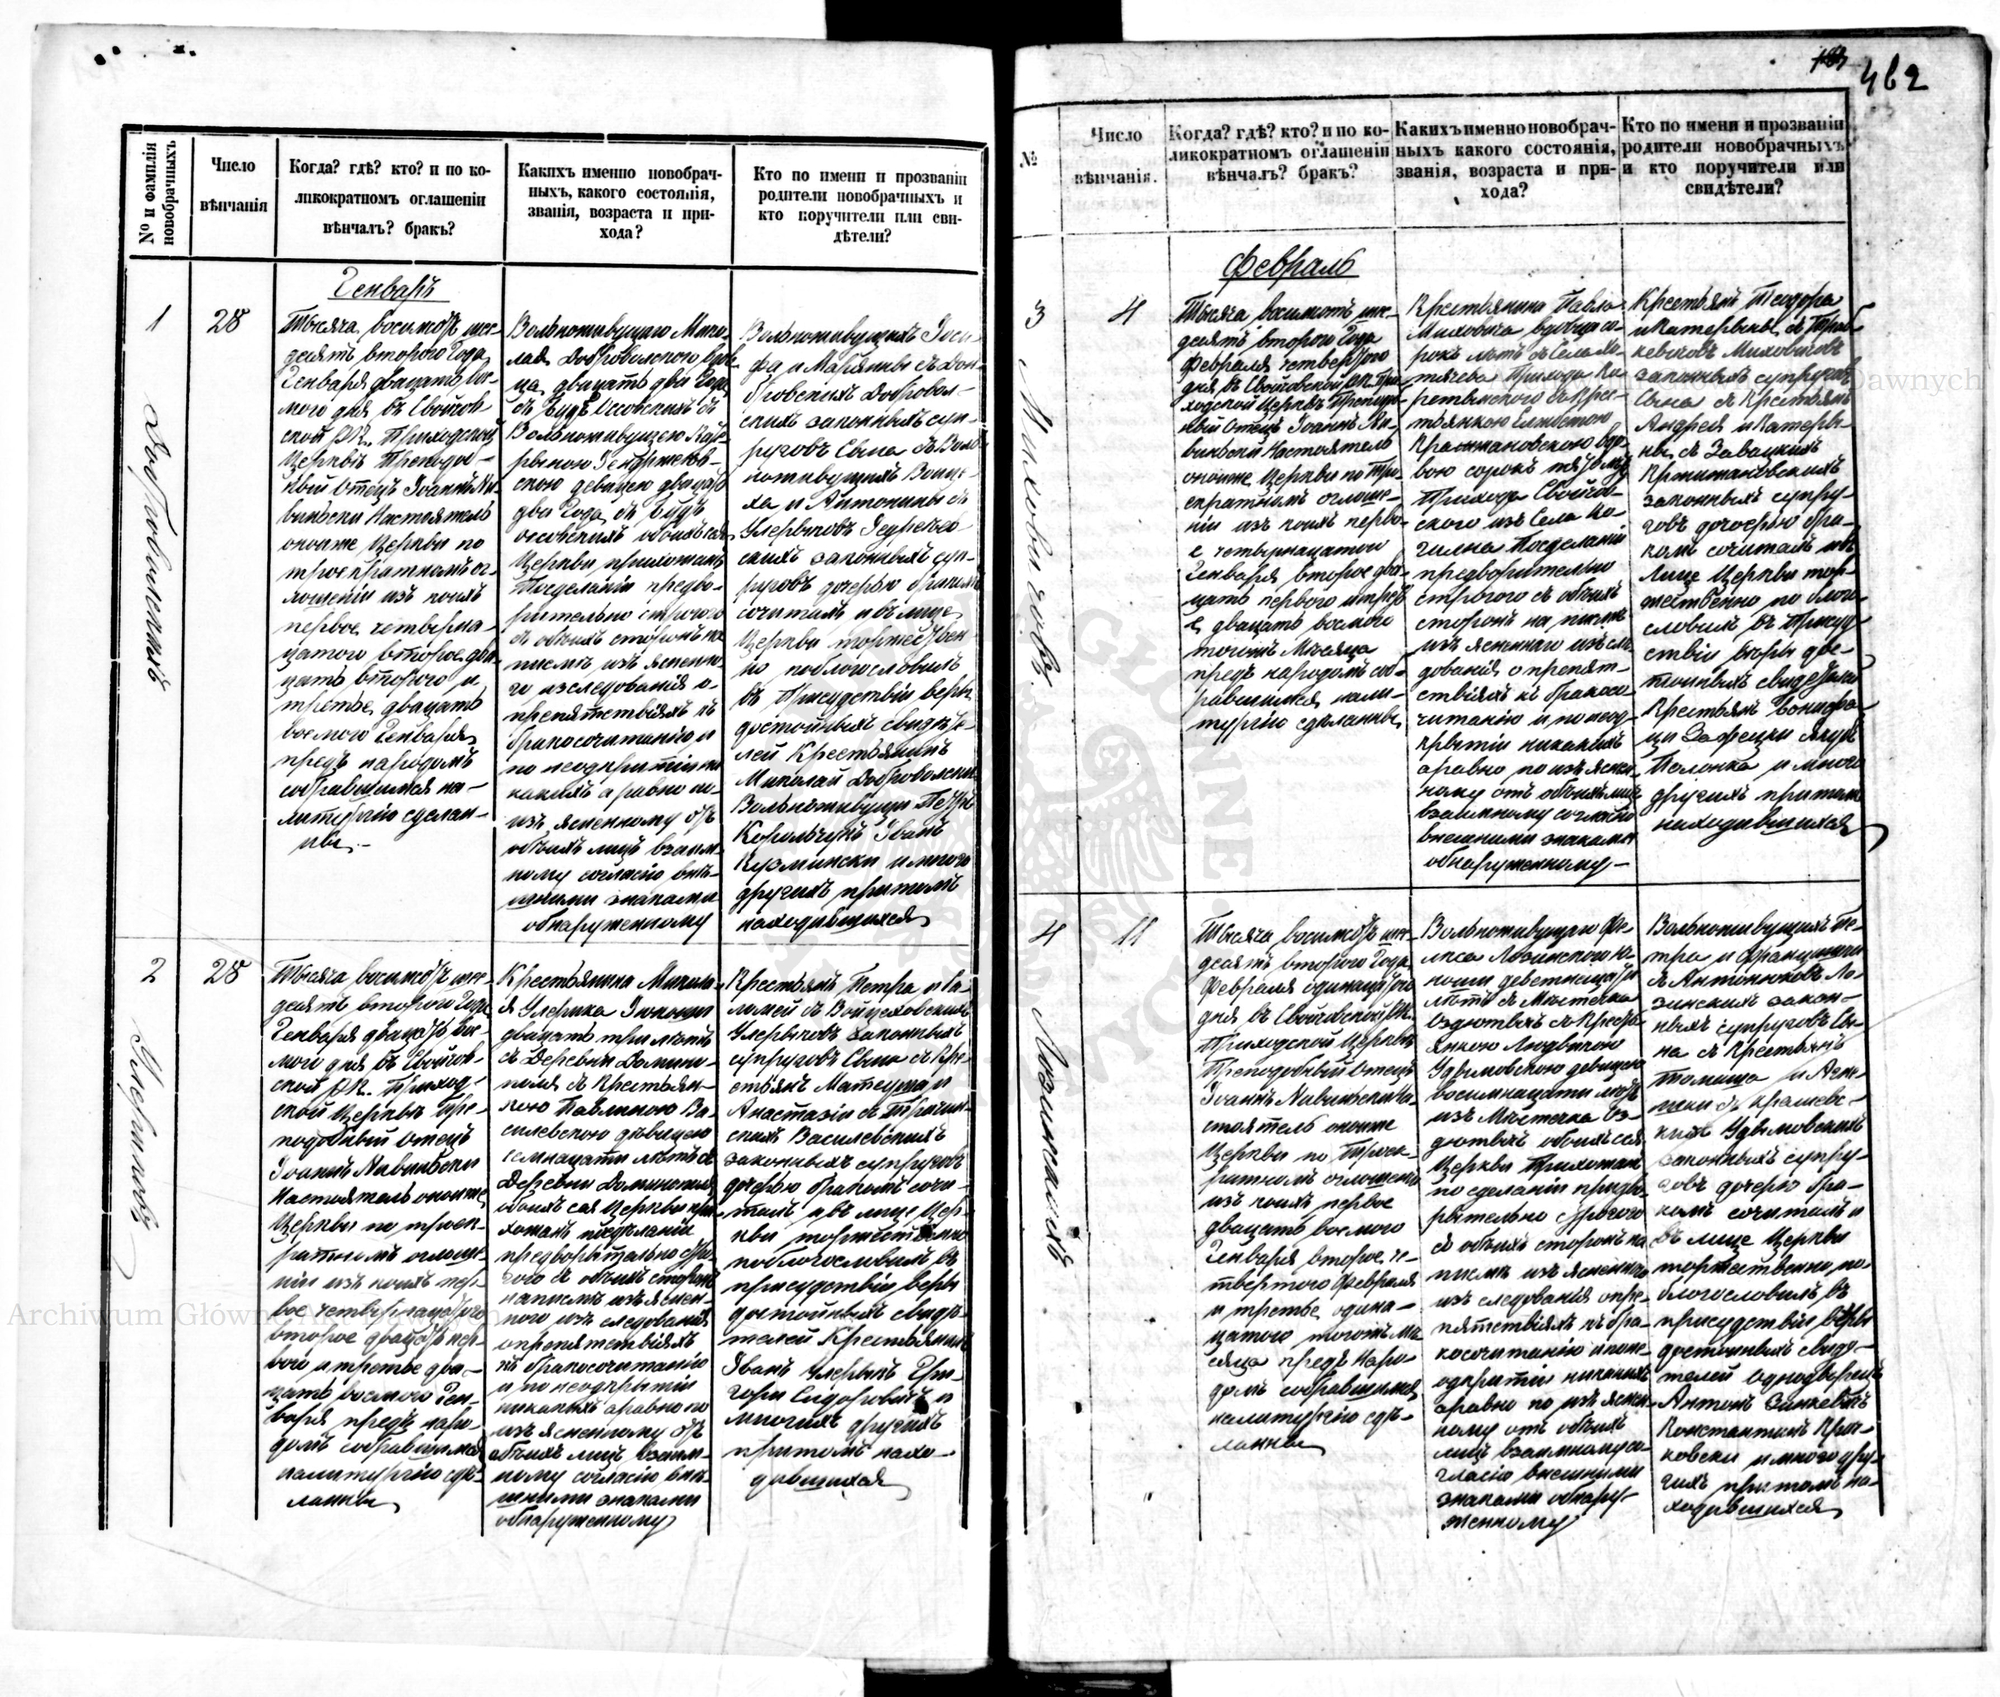 462
№ и фамилія новобрачныхъ
Число вѣнчанія
Когда? гдѣ? кто? и по ко-
ликократномъ оглашеніи
вѣнчалъ? бракъ?
Каких именно новобрач-
ныхъ, какого состоянія,
званія, возраста и при-
хода?
Кто по имени и прозваніи
родители новобрачныхъ и
кто поручители или сви-
дѣтели?
Генварь
1
28
Тысяча восимотъ шес-
десятъ второго Года
Генваря двацать вос-
мого дня въ Свойчов-
ской РК. Приходской
Церквѣ Преподоб-
ный Отецъ Іоаннъ
Настоятель
оноиже Церкви по
троекратномъ ог-
лошеніи изъ коихъ
первое четверна-
цатого второе два-
цать второго и
третье двацать
восмого Генваря
предъ народомъ
собравшимся на
литургію сделан-
ны.
Вольноживущаго
Добровольского
двацать два года
Вольноживущею
девицею двацать
два Года съ Будъ
Осовскихъ обоихъ сея
Церкви прихожанъ
Посделаніи предва-
рительно строгого
съ обоихъ сторонъ на
писмѣ изъясненно-
го изследованія о
препятствіяхъ къ
бракосочитанію и
по неодкрытіи ни-
какихъ а равно по
изъясненному отъ
обоихъ лицъ взаим-
ному согласію внѣ-
шними знаками
обнаруженному
Вольноживущихъ Іоси-
фа и Маріянны съ Дом-
бровскихъ Добровол-
скихъ законныхъ суп-
руговъ Сына съ Воль-
ноживущихъ
и Антонины съ
законныхъ суп-
руговъ дочерью бракомъ
сочиталъ и въ лице
Церкви торжествен-
но поблогословилъ
въ Присудствіи веры
достойныхъ свидѣте-
лей Крестьянинъ
Миколай Добровольски
Вольноживущи Петръ
Корольчукъ Иванъ
Кузмински и много
другихъ притомъ
находившихся
2
28
Тысяча восимотъ шес-
десятъ второго Года
Генваря двацать вос-
мого дня въ Свойчов-
ской РК. Приход-
ской Церквѣ Пре-
подобный Отецъ
Іоаннъ
Настоятель оноиже
Церкви по троек-
ратномъ оглоше-
ніи изъ коихъ пер-
вое четвернацатого
второе двацать пер-
вого и третье два-
цать восмого Ген-
варя предъ наро-
домъ собравшимся
налитургію сдѣ-
ланны
Крестьянина Микола-
я Улерика Юноши
двацать три лѣтъ
съ Деревни Домино-
поля съ Крестьян-
кою Павлиною Ва-
силевскою дѣвицею
семнацати лѣтъ съ
Деревни Доминополя
обоихъ сея Церкви при-
хожанъ посдѣланіи
предворытельно стро-
гого съ обоихъ сторонъ
написмѣ изъяснен-
ного изъ следованія
опрепятствіяхъ
къ бракосочитанію
и по неодкрытіи
никакихъ а равно по
изъясненному отъ
обоихъ лицъ взаим-
ному согласію внѣ-
шними знаками
обнаруженному
Крестьянъ Петра и Са-
ломеи съ Войцеховскихъ
Улерыковъ законныхъ
супруговъ Сына съ Кре-
стьянъ Матеуша и
Анастазіи съ
Василевскихъ
законныхъ супруговъ
дочерью бракомъ сочи-
талъ и въ лице Цер-
кви торжественно
поблогословилъ въ
присудствіи веры
достойныхъ свидѣ-
телей Крестьянинъ
Иванъ Улерыкъ Гри-
гори Сидоровичъ и
многихъ другихъ
притомъ нахо-
дившихся
№
Число вѣнчанія.
Когда? гдѣ? кто? и по ко-
ликократномъ оглашеніи
вѣнчалъ? бракъ?
Какихъ именно новобрач-
ныхъ какого состоянія,
званія, возраста и при-
хода?
Кто по имени и прозваніи
родители новобрачныхъ
и кто поручители или
свидѣтели?
Февраль
3
4
Тысяча восимотъ шес-
десятъ второго Года
Февраля четвертого
дня въ Свойчовской РК При-
ходской Церквѣ Преподоб-
ный Отецъ Іоаннъ
Настоятель
оноиже Церкви по Тро-
екратномъ оглоше-
ніи изъ коихъ перво-
е четвернацатого
Генваря второе два-
цать первого и треть-
е двацать восмого
тогожъ Мѣсяца
предъ народомъ соб-
равшимся нали-
тургію сдѣланны
Крестьянина Павла
Миховича вдовца со-
рокъ лѣтъ съ Села
Прихода
съ Крес-
тьянкою Елисветою
вдо-
вою сорокъ
Прихода Свойчов-
ского изъ Села Мо-
гильна Посделаніи
предворительно
строгого съ обоихъ
сторонъ на писмѣ
изъясненного изслѣ-
дованія о препят-
ствіяхъ къ бракосо-
читанію и по неод-
крытіи никакихъ
аравно по изъяснен-
ному отъ обоихъ лицъ
взаимному согласію
внешними знаками
обнаруженному
Крестьянъ Теодора
и Катерыны съ
Миховичовъ
законныхъ супруговъ
Сына съ Крестьянъ
Андрея и Катеры-
ны съ Завацкихъ
законныхъ супру-
говъ дочерью бра-
комъ сочиталъ и въ
Лице Церкви тор-
жественно по благо-
словилъ въ Присуд-
ствіи веры дос-
тойныхъ свидетелей
Крестьянъ Бонифа-
ци
и много
другихъ притомъ
находившихся
4
11
Лозинскихъ
Тысяча восимотъ шес-
десятъ второго Года
Февраля одинацатого
дня въ Свойчовской РК.
Приходской Церквѣ
Преподобный Отецъ
Іоаннъ На-
стоятель оноиже
Церкви по Троек-
ратномъ оглошеніи
изъ коихъ первое
двацать восмого
Генваря второе че-
твертого Февраля
и третье одина-
цатого тогожъ мѣ-
сяца предъ Наро-
домъ собравшимся
налитургію сдѣ-
ланны
Вольноживущаго Фе-
лиса Лозинского ю-
ноши деветнацати
лѣтъ съ Мѣстечка
Оздютычъ съ Кресть-
янкою Людвикою
Удымовскою девицею
восимнацати лѣтъ
изъ Мѣстечка Оз-
дютычъ обоихъ сея
Церкви Прихожанъ
по сделаніи предво-
рытельно строгого
съ обоихъ сторонъ на
писмѣ изъясненного
изъ следованія о пре-
пятствіяхъ къ бра-
косочитанію и по не-
одкрытіи никакихъ
аравно по изъяснен-
ному отъ обоихъ
лицъ взаимному со-
гласію внешними
знаками обнару-
женному
Вольноживущихъ Пе-
тра и Францишки
съ Антонюковъ Ло-
зинскихъ закон-
ныхъ супруговъ Сы-
на съ Крестьянъ
Томаша и Агне-
шки съ Крашевс-
кихъ Удымовскихъ
законныхъ супру-
говъ дочерью бра-
комъ сочиталъ и
въ лице Церкви
торжественно по-
благословилъ въ
присудствіи веры
достойныхъ свиде-
телей Однодворецъ
Антонъ Зинкевичъ
Константинъ
и много дру-
гихъ притомъ на-
ходившихся
Archiwum Główne Akt Dawnych